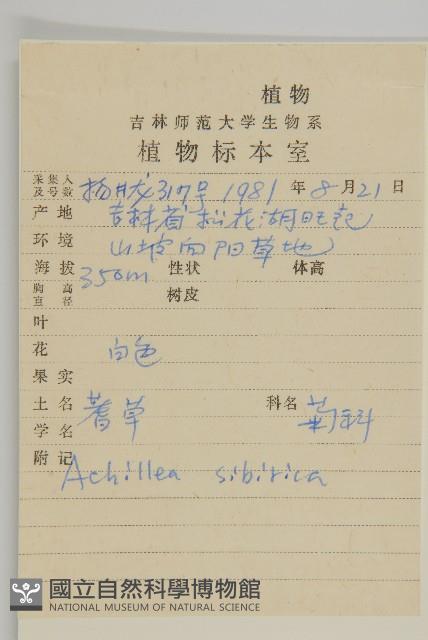 植物
吉林师范大学生物系
植物标本室
采集人及号数 杨 317号 1981年8月21日
产地 吉林省松花湖旺起
环境 山坡向阳草地
海拔 350m 性状 体高
胸高直径 树皮
叶
花 白色
果实
土名 蓍草 科名 菊科
学名
附记 Achillea sibirica
國立自然科學博物館
NATIONAL MUSEUM OF NATURAL SCIENCE